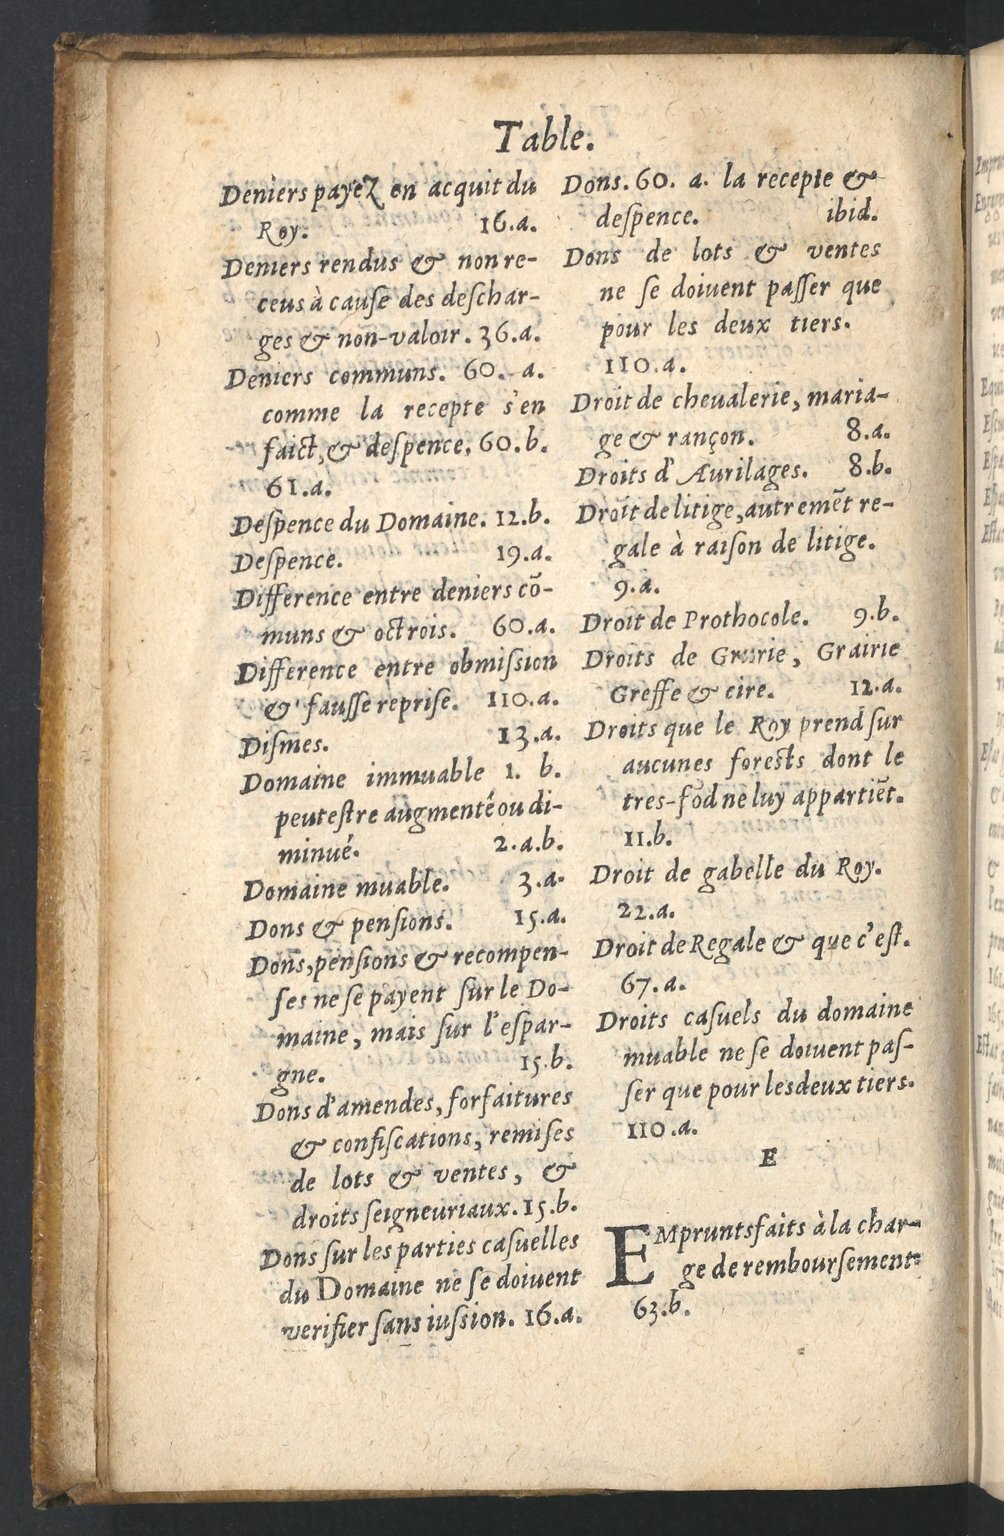 Table.
Deniers payez en acquit du
Roy. 16.a.
Deniers rendus & non re-
ceus à cauſe des deſchar-
ges & non-valoir. 36.a.
Deniers communs. 60. a.
comme la recepte s'en
faict, & deſpence. 60.b.
61.a.
Deſpence du Domaine. 12.b.
Deſpence. 19.a.
Difference entre deniers cō-
muns & octrois. 60.a.
Difference entre obmiſsion
& fauſſe repriſe. 110.a.
Diſmes. 13.a.
Domaine immuable 1. b.
peuteſtre augmenté ou di-
minué. 2.a.b.
Domaine muable. 3.a.
Dons & penſions. 15.a.
Dons, penſions & recompen-
ſes ne ſe payent ſur le Do-
maine, mais ſur l'eſpar-
gne. 15.b.
Dons d'amendes, forfaitures
& confiſcations, remiſes
de lots & ventes, &
droits ſeigneuriaux. 15.b.
Dons ſur les parties caſuelles
du Domaine ne ſe doiuent
verifier ſans iuſsion. 16.a.
Dons. 60. a. la recepte &
deſpence. ibid.
Dons de lots & ventes
ne ſe doiuent paſſer que
pour les deux tiers.
110.a.
Droit de cheualerie, maria-
ge & rançon. 8.a.
Droits d'Aurilages. 8.b.
Droit de litige, autremēt re-
gale à raiſon de litige.
9.a.
Droit de Prothocole. 9.b.
Droits de Grurie, Grairie
Greffe & cire. 12.a.
Droits que le Roy prend ſur
aucunes foreſts dont le
tres-fōd ne luy appartiēt.
11.b.
Droit de gabelle du Roy.
22.a.
Droit de Regale & que c'eſt.
67.a.
Droits caſuels du domaine
muable ne ſe doiuent paſ-
ſer que pour les deux tiers.
110.a.
E
EMprunts faits à la char-
ge de rembourſement.
63.b.